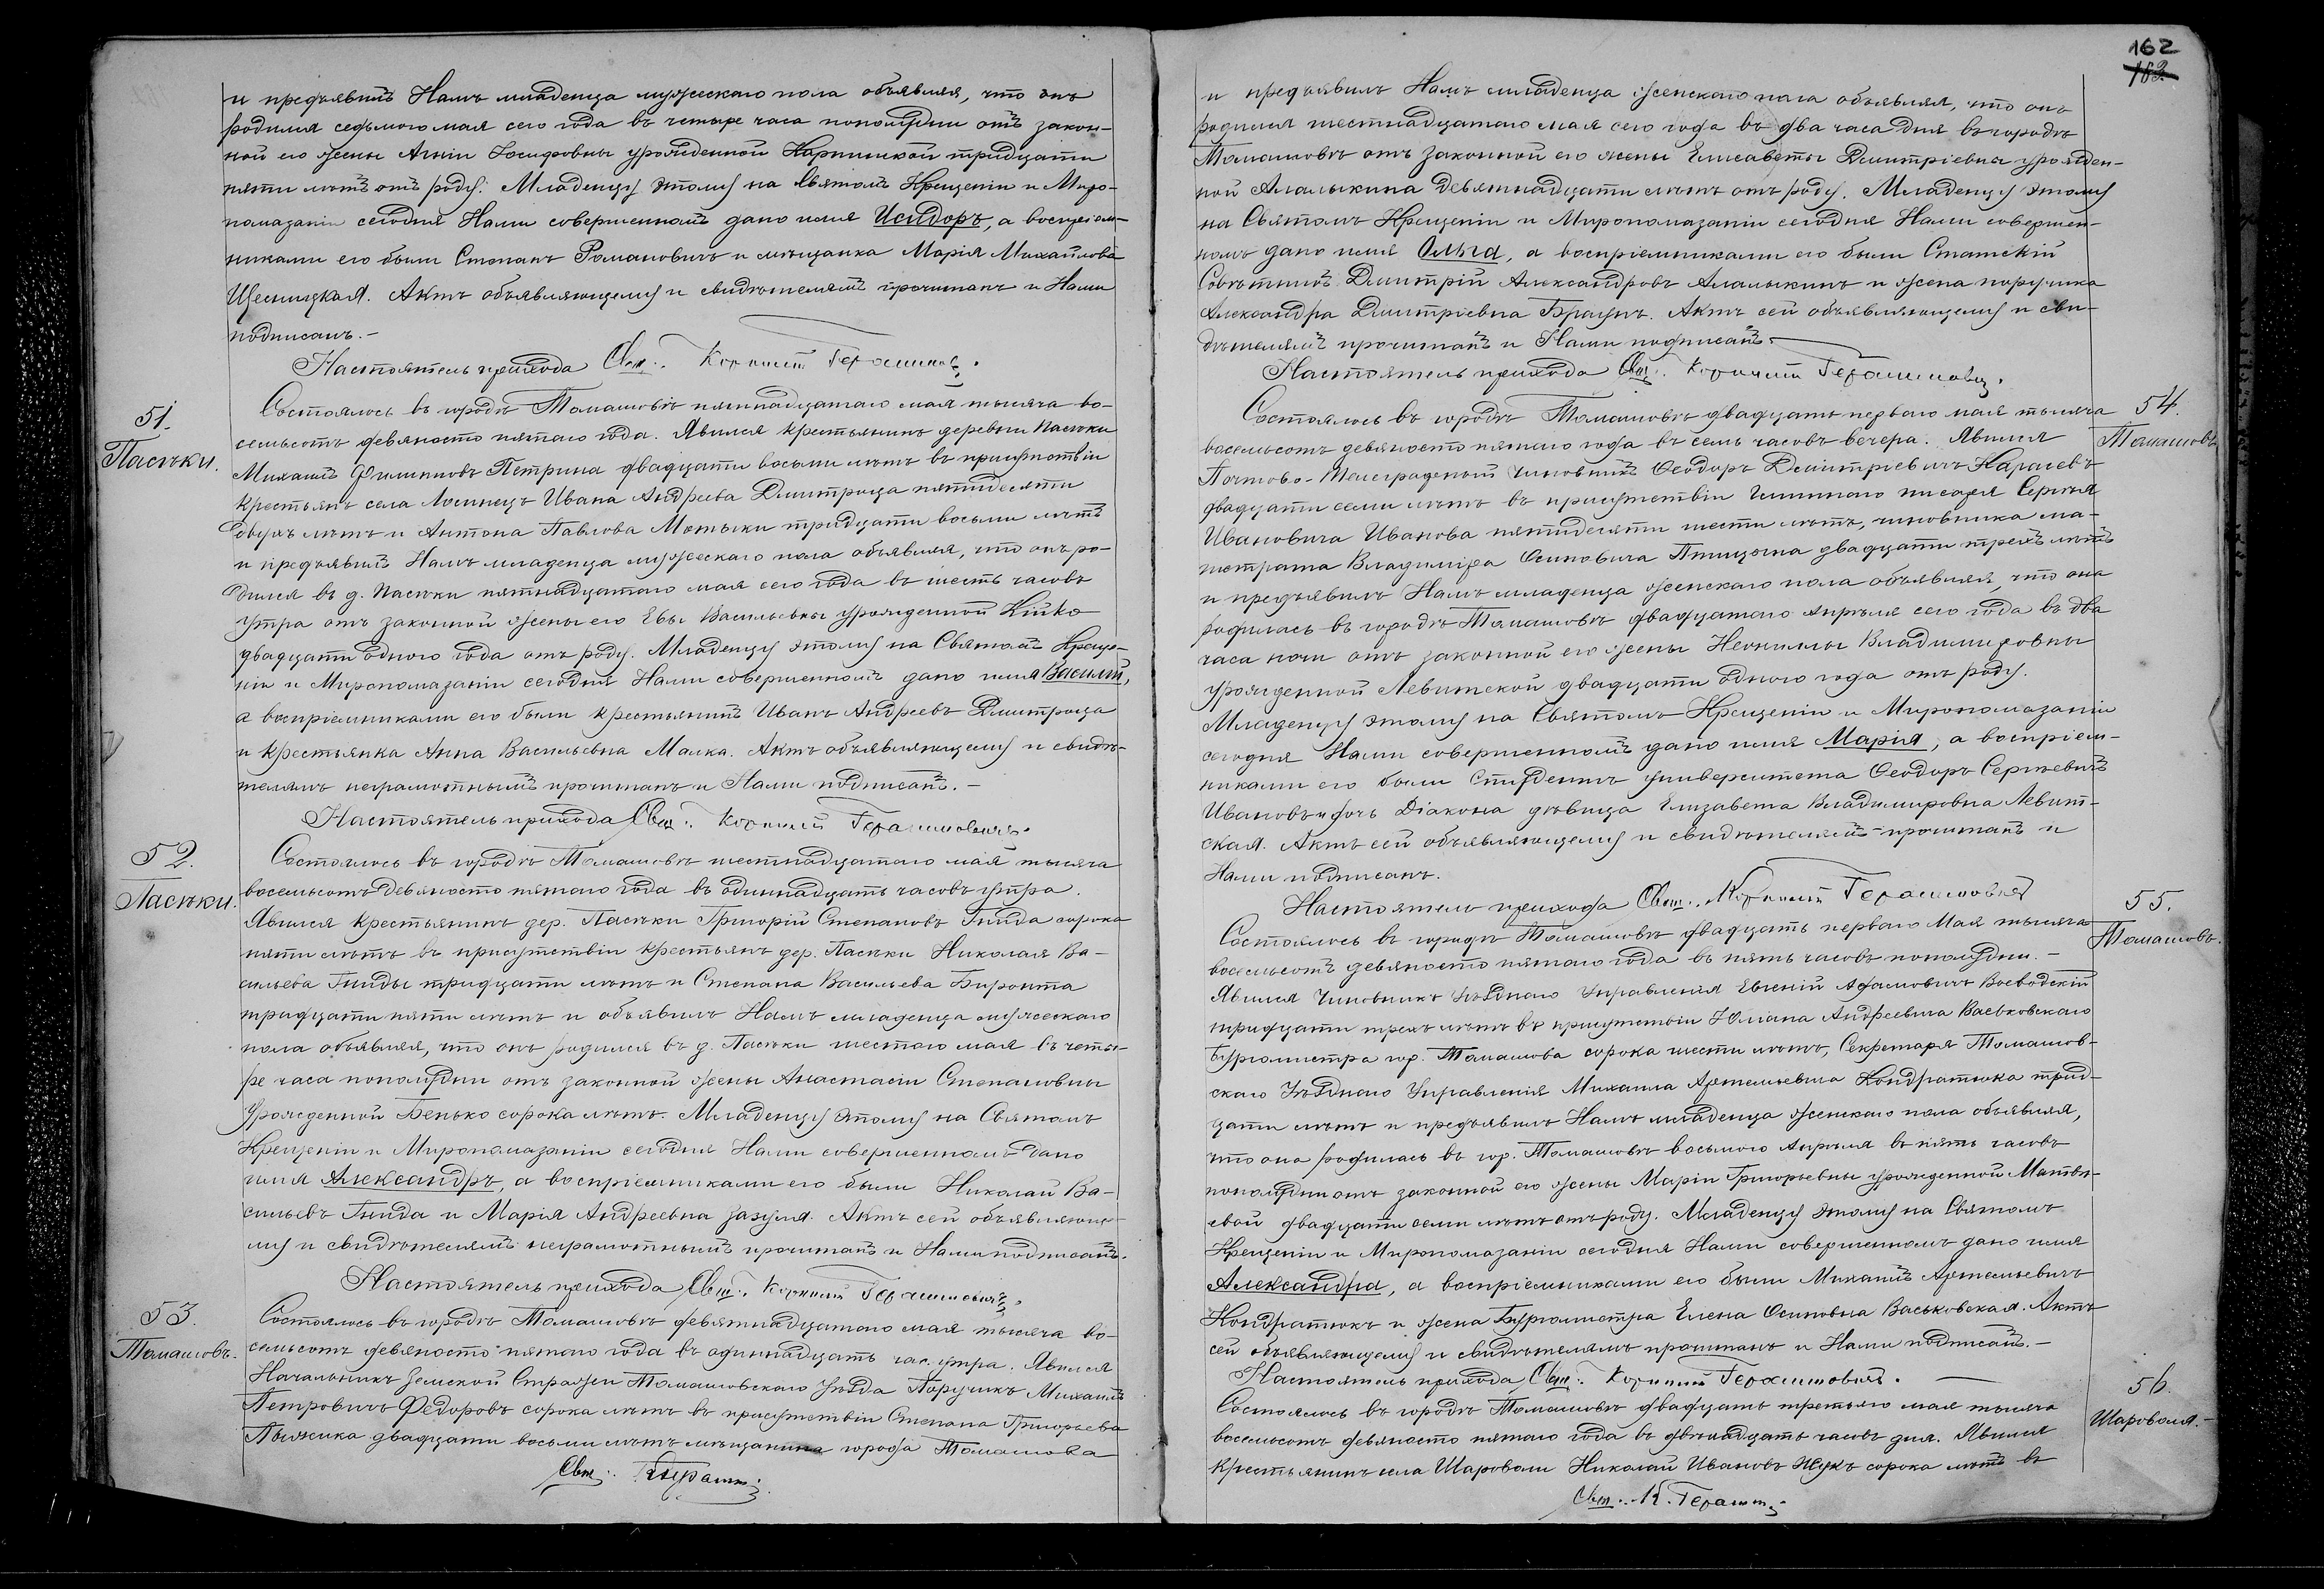 и предъявилъ Намъ младенца мужескаго пола объявляя, что онъ
родился седьмого мая сего года въ четыре часа пополудни отъ закон-
ной его жены Агніи Іосифовны урожденной тридцати
пяти лѣтъ отъ роду. Младенцу этому на Святомъ Крещеніи и Миро-
помазаніи сегодня Нами совершенномъ дано имя Исидоръ, а воспріем-
никами его были Степанъ Романовичъ и мѣщанка Марія Михайлова
Щесницкая. Актъ объявляющему и свидѣтелямъ прочитанъ и Нами
подписанъ.-
Настоятель прихода Свящ. Корнилій
51.
Пасѣки.
Состоялось въ городѣ Томашовѣ пятнадцатаго мая тысяча во-
семьсотъ девяносто пятаго года. Явился крестьянинъ деревни Пасѣки
Михаилъ Филипповъ Петрина двадцати восьми лѣтъ въ присутствіи
крестьянъ села Лосинецъ Ивана Андреева Дмитроца пятидесяти
двухъ лѣтъ и Антона Павлова Мотыки тридцати восьми лѣтъ
и предъявилъ Намъ младенца мужескаго пола объявляя, что онъ ро-
дился въ д. Пасѣки пятнадцатаго мая сего года въ шесть часовъ
утра отъ законной жены его Евы Васильевны урожденной Кійко
двадцати одного года отъ роду. Младенцу этому на Святомъ Креще-
ніи и Миропомазаніи сегодня Нами совершенномъ дано имя Василій,
а воспріемниками его были крестьянинъ Иванъ Андреевъ Дмитроца
и крестьянка Анна Васильевна Малка. Актъ объявляющему и свидѣ-
телямъ неграмотнымъ прочитанъ и Нами подписанъ.-
Настоятель прихода Свящ. Корнилій Герасимовичъ.
52.
Пасѣки.
Состоялось въ городѣ Томашовѣ шестнадцатаго мая тысяча
восемьсотъ девяносто пятаго года въ одиннадцать часовъ утра.
Явился крестьянинъ дер. Пасѣки Григорій Степановъ Гнида сорока
пяти лѣтъ въ присутствіи крестьянъ дер. Пасѣки Николая Ва-
сильева Гниды тридцати лѣтъ и Степана Васильева Биронта
тридцати пяти лѣтъ и объявилъ Намъ младенца мужескаго
пола объявляя, что онъ родился въ д. Пасѣки шестого мая въ четы-
ре часа пополудни отъ законной жены Анастасіи Степановны
урожденной Бенько сорока лѣтъ. Младенцу этому на Святомъ
Крещеніи и Миропомазаніи сегодня Нами совершенномъ дано
имя Александръ, а воспріемниками его были Николай Ва-
сильевъ Гнида и Марія Андреевна Зазуля. Актъ сей объявляюще-
му и свидѣтелямъ неграмотнымъ прочитанъ и Нами подписанъ.
Настоятель прихода Свящ. Корнилій Герасимовичъ.
53.
Томашовъ.
Состоялось въ городѣ Томашовѣ девятнадцатаго мая тысяча во-
семьсотъ девяносто пятаго года въ одиннадцать час. утра. Явился
Начальникъ Земской Стражи Томашовскаго Уѣзда Поручикъ Михаилъ
Петровичъ Федоровъ сорока лѣтъ въ присутствіи Степана Григорьева
двадцати восьми лѣтъ мѣщанина города Томашова
Свящ.
162
162
и предъявилъ Намъ младенца женскаго пола объявляя, что онъ
родился шестнадцатаго мая сего года въ два часа дня въ городѣ
Томашовѣ отъ законной его жены Елисаветы Дмитріевны урожден-
ной Алалыкина девятнадцати лѣтъ отъ роду. Младенцу этому
на Святомъ Крещеніи и Миропомазаніи сегодня Нами совершен-
номъ дано имя Ольга, а воспріемниками его были Статскій
Совѣтникъ Дмитрій Александровъ Алалыкинъ и жена поручика
Александра Дмитріевна Браунъ. Актъ сей объявляющему и сви-
дѣтелямъ прочитанъ и Нами подписанъ.
Настоятель прихода Свящ. Корнилій Герасимовичъ.
54.
Томашовъ.
Состоялось въ городѣ Томашовѣ двадцать перваго мая тысяча
восемьсотъ девяносто пятаго года въ семь часовъ вечера. Явился
Почтово-Телеграфный чиновникъ Ѳеодоръ Дмитріевичъ
двадцати семи лѣтъ въ присутствіи Гминнаго писаря Сергѣя
Ивановича Иванова пятидесяти шести лѣтъ, чиновника ма-
гистрата Владиміра Осиповича двадцати трехъ лѣтъ
и предъявилъ Намъ младенца женскаго пола объявляя, что она
родилась въ городѣ Томашовѣ двадцатаго Апрѣля сего года въ два
часа ночи отъ законной его жены Неониллы Владимировны
урожденной Левитской двадцати одного года отъ роду.
Младенцу этому на Святомъ Крещеніи и Миропомазаніи
сегодня Нами совершенномъ дано имя Марія, а воспріем-
никами его были Студентъ университета Ѳеодоръ Сергѣевичъ
Ивановъ и дочь Діакона дѣвица Елизавета Владимировна Левит-
ская. Актъ сей объявляющему и свидѣтелямъ прочитанъ и
Нами подписанъ.
Настоятель прихода Свящ. Корнилій Герасимовичъ
55.
Томашовъ.
Состоялось въ городѣ Томашовѣ двадцать перваго Мая тысяча
восемьсотъ девяносто пятаго года въ пять часовъ пополудни.-
Явился Чиновникъ Уѣзднаго Управленія Евгеній Адамовичъ Воеводскій
тридцати трехъ лѣтъ въ присутствіи Юліана Андреевича Васьковскаго
Бургомистра гор. Томашова сорока шести лѣтъ, Секретаря Томашов-
скаго Уѣзднаго Управленія Михаила Артемьевича Кондратюка трид-
цати лѣтъ и предъявилъ Намъ младенца женскаго пола объявляя,
что она родилась въ гор. Томашовѣ восьмого Апрѣля въ пять часовъ
пополудни отъ законной его жены Маріи Григорьевны урожденной Матвѣ-
евой двадцати семи лѣтъ отъ роду. Младенцу этому на Святомъ
Крещеніи и Миропомазаніи сегодня Нами совершенномъ дано имя
Александра, а воспріемниками его были Михаилъ Артемьевичъ
Кондратюкъ и жена Бургомистра Елена Осиповна Васьковская. Актъ
сей объявляющему и свидѣтелямъ прочитанъ и Нами подписанъ.-
Настоятель прихода Свящ. Корнилій Герасимовичъ.
56.
Шароволя.-
Состоялось въ городѣ Томашовѣ двадцать третьяго мая тысяча
восемьсотъ девяносто пятаго года въ двѣнадцать часовъ дня. Явился
Крестьянинъ села Шароволи Николай Ивановъ Жукъ сорока лѣтъ въ
Свящ. К. Герасим.